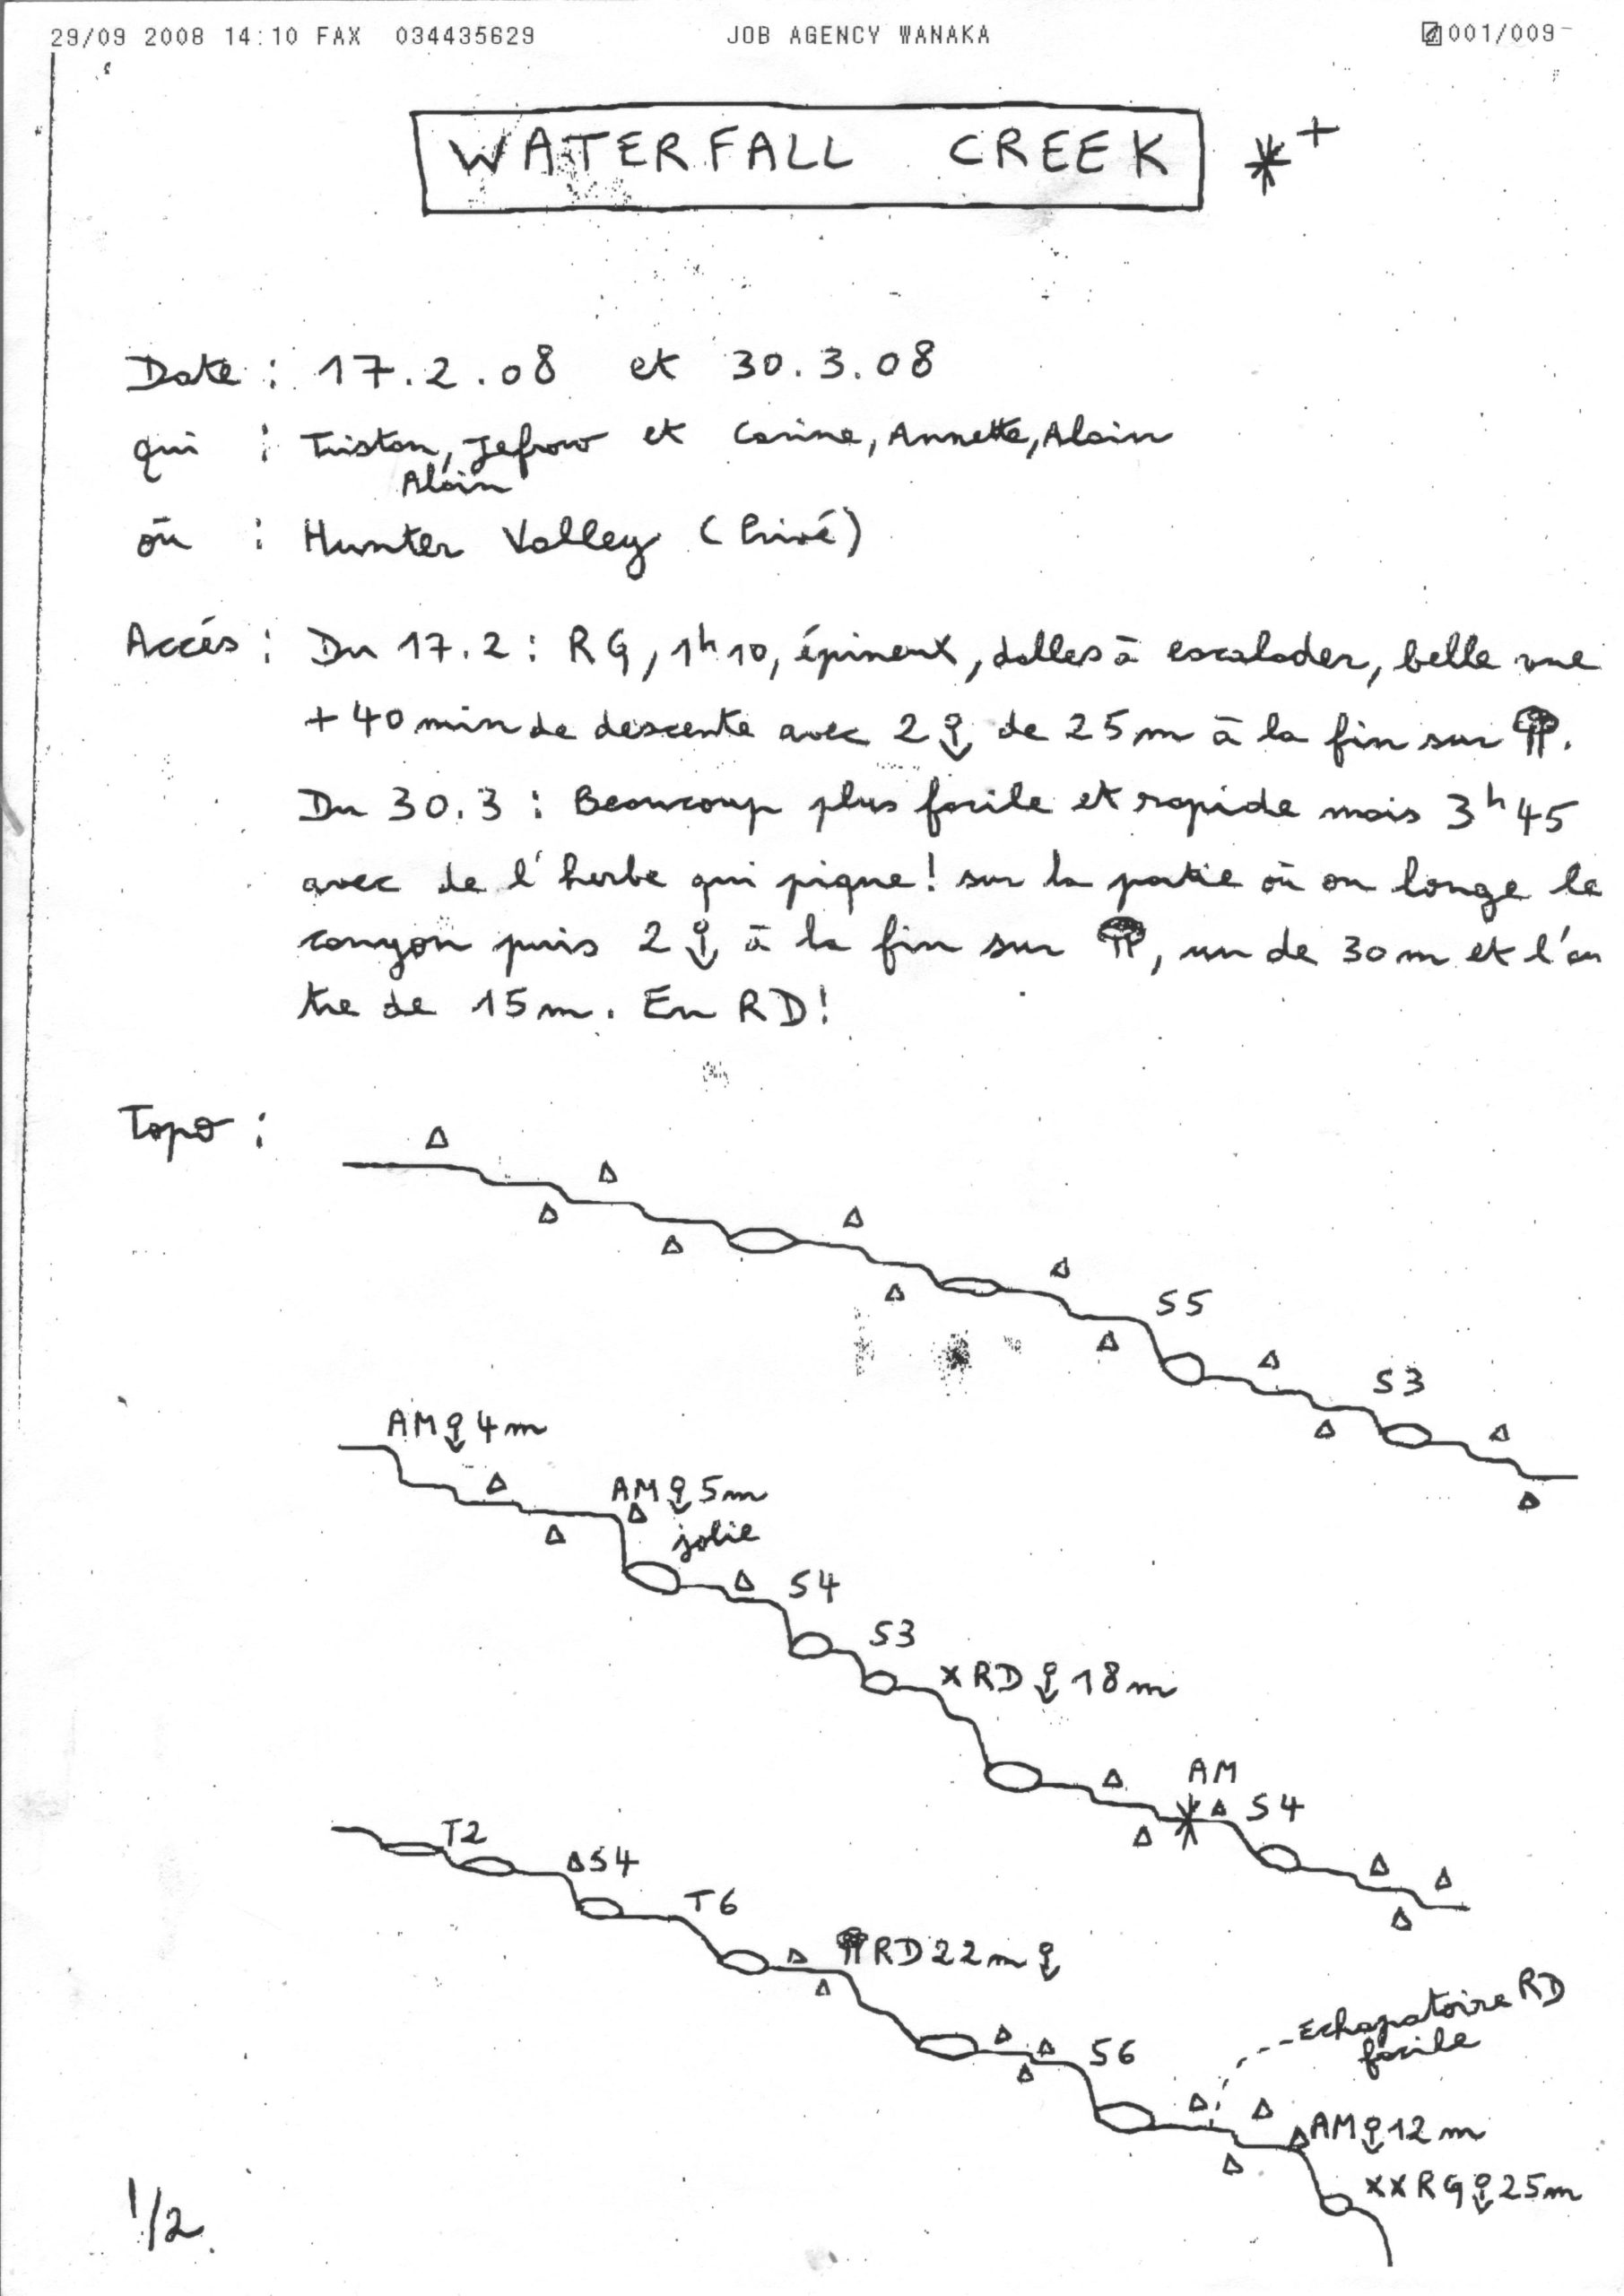 29/09 2008 14:10 FAX 034435629 JOB AGENCY WANAKA 001/009
WATERFALL CREEK *+
Date : 17.2.08 et 30.3.08
qui : Tristan, Jefrow et Carine, Annette, Alain
Alain
où : Hunter Valley (Privé)
Accés : Du 17.2 : RG, 1h10, épineux, dalles à escalader, belle vue
+ 40 min de descente avec 2 de 25m à la fin sur .
Du 30.3 : Beaucoup plus facile et rapide mais 3h45
avec de l'herbe qui pique! sur la partie où on longe le
canyon puis 2 à la fin sur , un de 30m et l'au
tre de 15m. En RD!
Topo :
S5
S3
AM 4m
AM 5m
jolie
S4
S3
x RD 18m
AM
S4
T2
S4
T6
RD 22m
S6
Echapatoire RD
facile
AM 12m
xx RG 25m
1/2